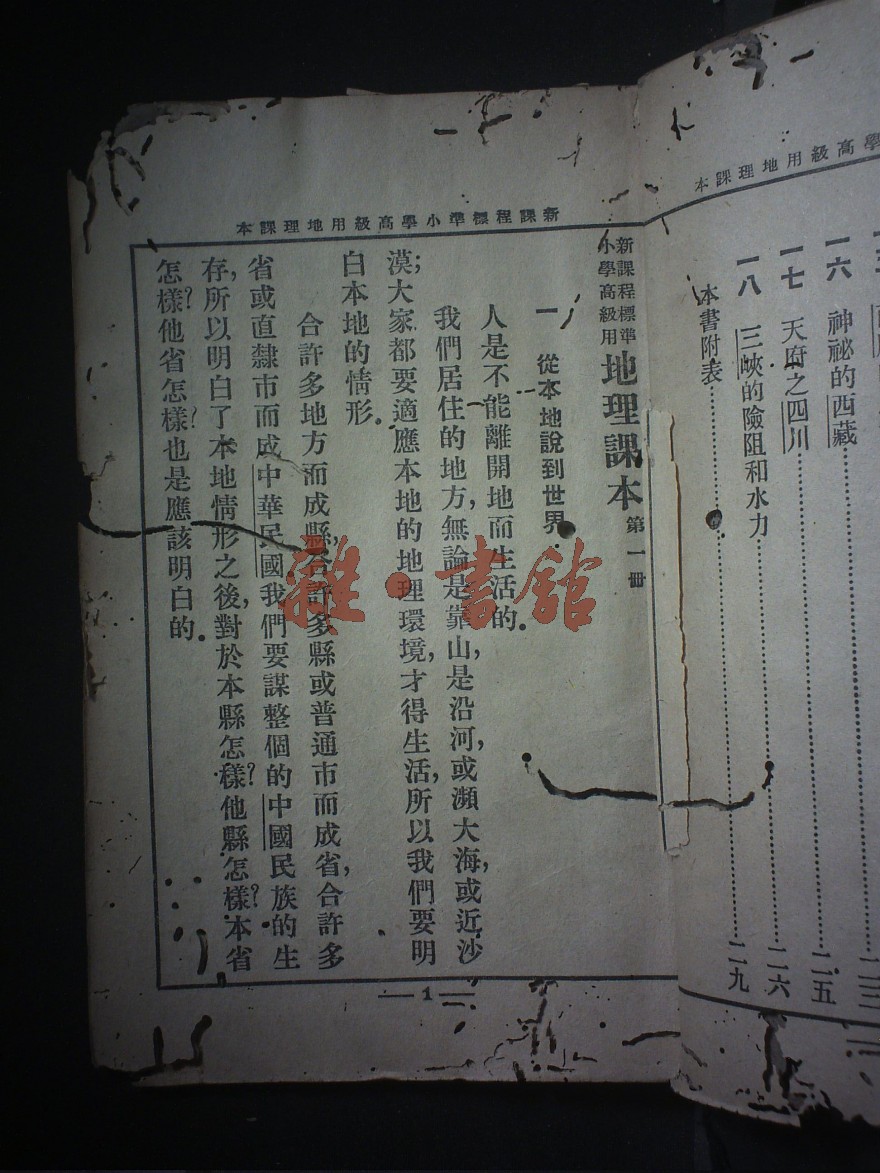 本課理地用級高學
一六 神祕的西藏 二五
一七 天府之四川 二六
一八 三峽的險阻和水力
本書附表 二九
本課理地用級高學小準標程課新
新課程標準
小學高級用
地理課本 第一冊
一 從本地說到世界
人是不能離開地而生活的。
我們居住的地方,無論是靠山,是沿河,或瀕大海,或近沙
漠;大家都要適應本地的地理環境,才得生活,所以我們要明
白本地的情形。
合許多地方而成縣,合許多縣或普通市而成省,合許多
省或直隸市而成中華民國。我們要謀整個的中國民族的生
存,所以明白了本地情形之後,對於本縣怎樣?他縣怎樣?本省
怎樣?他省怎樣?也是應該明白的。
1
雜·書館